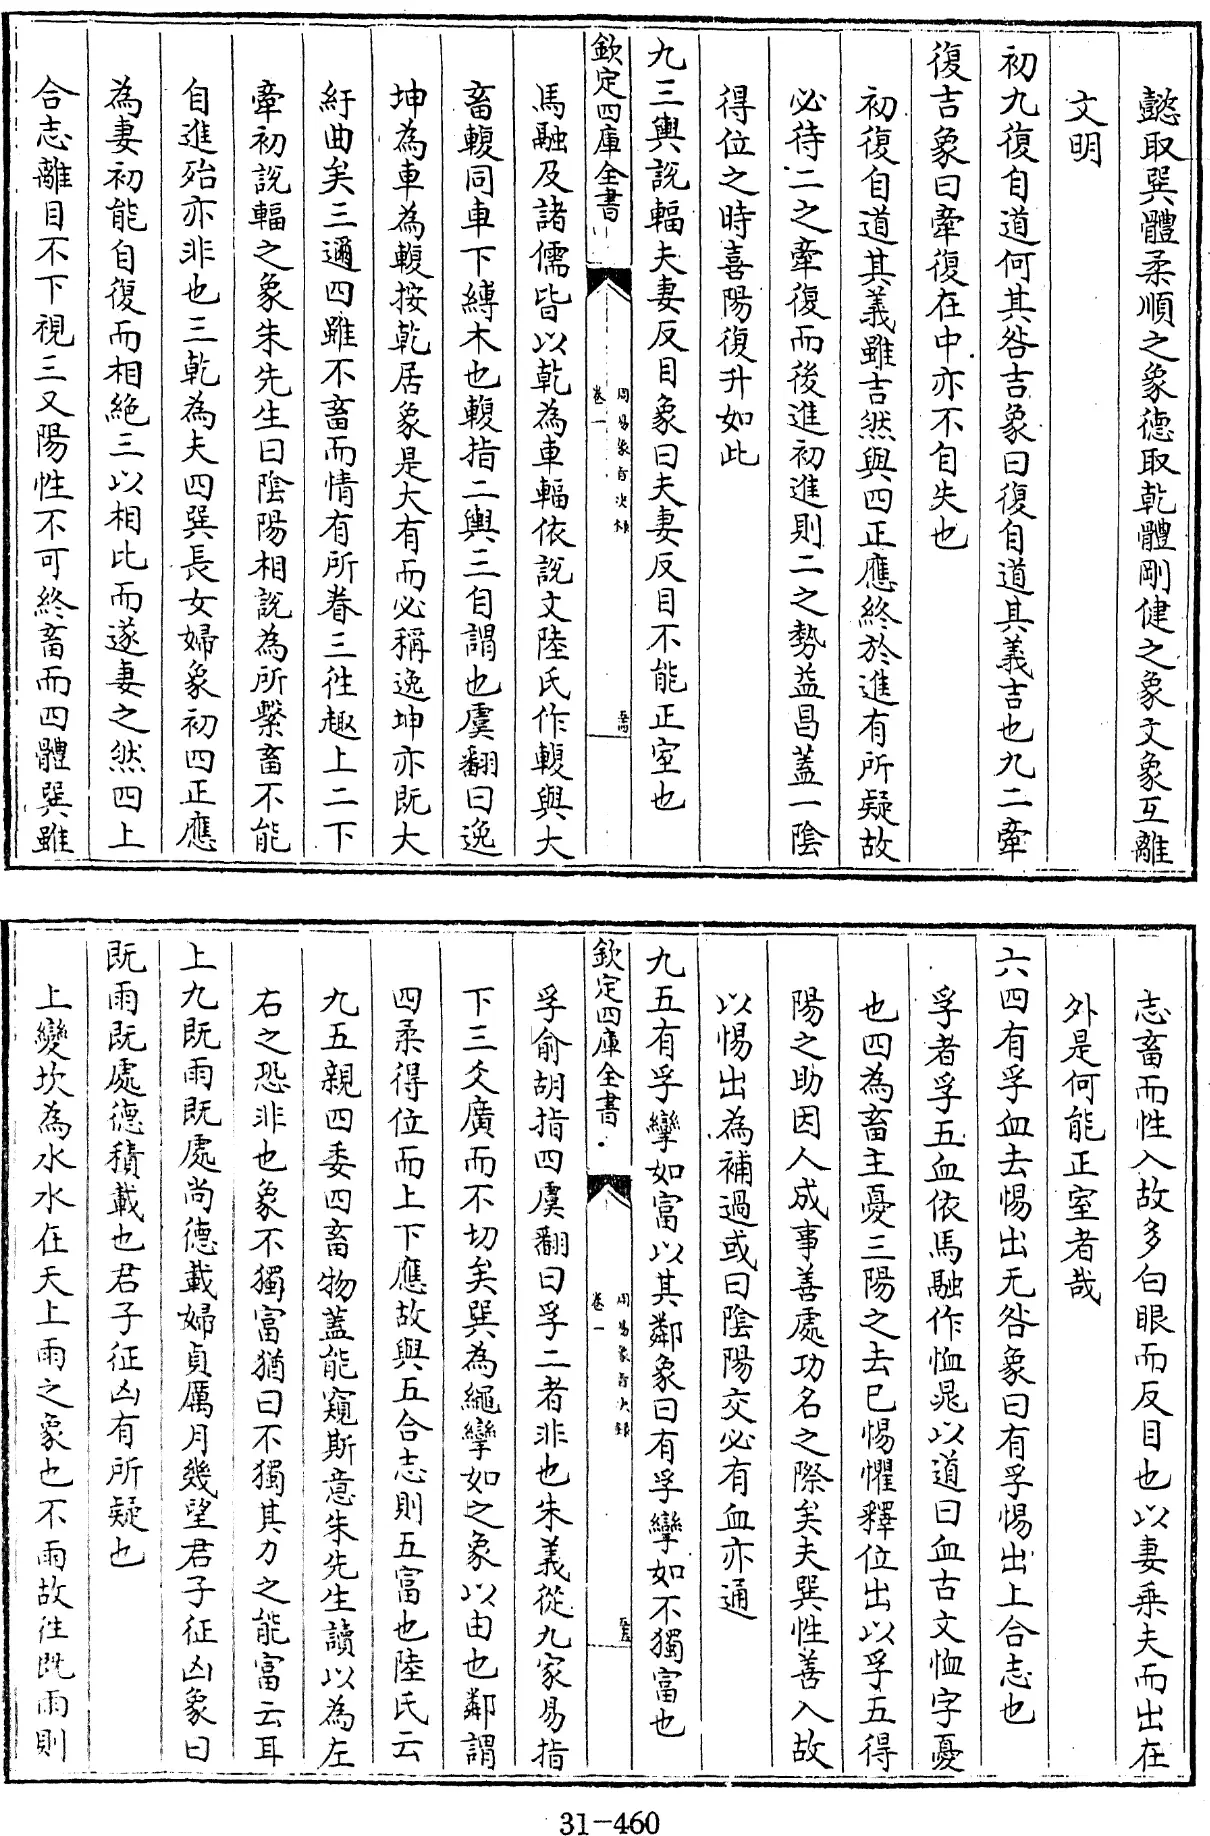 懿取巽體柔順之象德取乾體剛健之象文象互離
文明
初九復自道何其咎吉象曰復自道其義吉也九二牽
復吉象曰牽復在中亦不自失也
初復自道其義雖吉然與四正應終於進有所疑故
必待二之牽復而後進初進則二之勢益昌蓋一陰
得位之時喜陽復升如此
九三輿説輻夫妻反目象曰夫妻反目不能正室也
欽定四庫全書
周易象旨決録
卷一
馬融及諸儒皆以乾為車輻依説文陸氏作輹與大
畜輹同車下縛木也輹指二輿三自謂也虞翻曰逸
坤為車為輹按乾居象是大有而必稱逸坤亦既大
紆曲矣三邇四雖不畜而情有所眷三徃趣上二下
牽初説輻之象朱先生曰陰陽相説為所繫畜不能
自進殆亦非也三乾為夫四巽長女婦象初四正應
為妻初能自復而相絶三以相比而遂妻之然四上
合志離目不下視三又陽性不可終畜而四體巽雖
志畜而性入故多白眼而反目也以妻乗夫而出在
外是何能正室者哉
六四有孚血去惕出无咎象曰有孚惕出上合志也
孚者孚五血依馬融作恤晁以道曰血古文恤字憂
也四為畜主憂三陽之去已惕懼釋位出以孚五得
陽之助因人成事善處功名之際矣夫巽性善入故
以惕出為補過或曰陰陽交必有血亦通
九五有孚攣如富以其鄰象曰有孚攣如不獨富也
欽定四庫全書
周易象旨決録
卷一
孚俞胡指四虞翻曰孚二者非也朱義從九家易指
下三爻廣而不切矣巽為繩攣如之象以由也鄰謂
四柔得位而上下應故與五合志則五富也陸氏云
九五親四委四畜物蓋能窺斯意朱先生讀以為左
右之恐非也象不獨富猶曰不獨其力之能富云耳
上九既雨既處尚德載婦貞厲月幾望君子征凶象曰
既雨既處德積載也君子征凶有所疑也
上變坎為水水在天上雨之象也不雨故徃既雨則
31-460